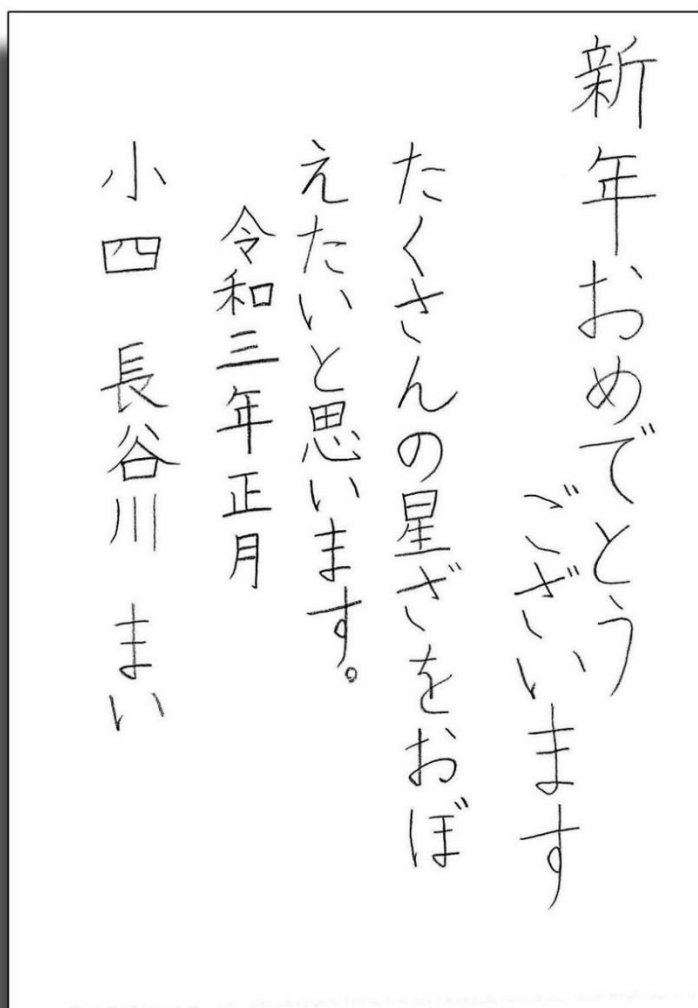 新年おめでとう
ございます
たくさんの星ざをおぼ
えたいと思います。
令和三年正月
小四 長谷川 まい